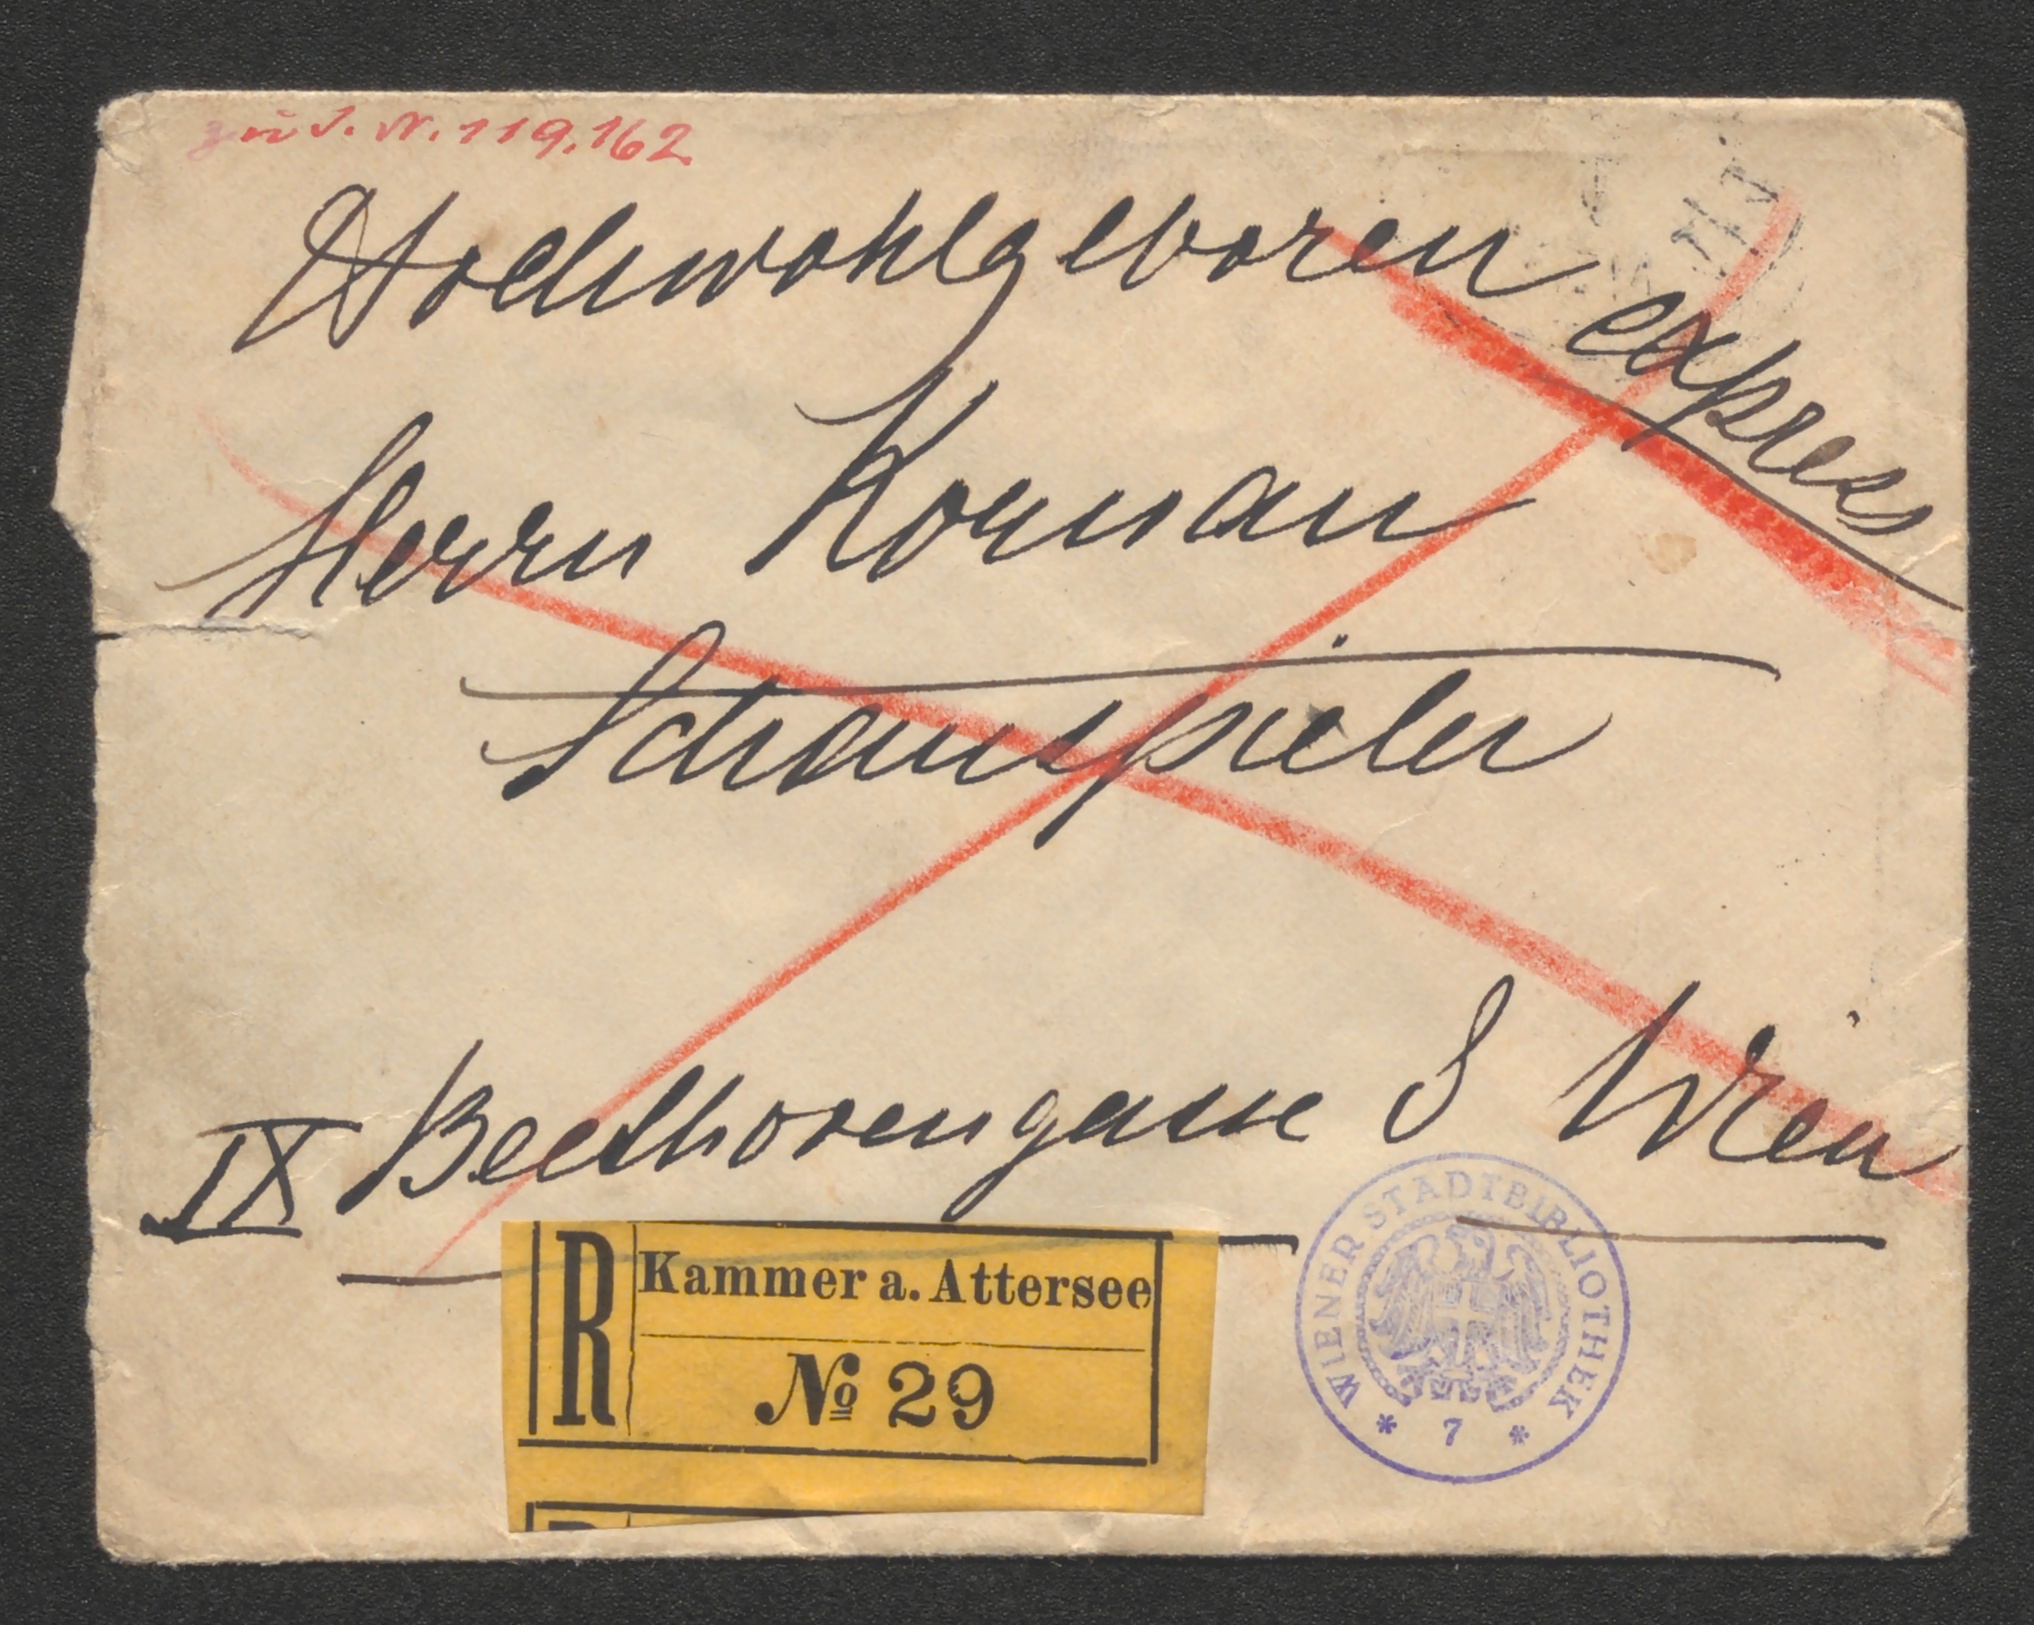 zu J. N. 119.162
Hochwohlgeboren
expres
Herrn Kornau
Schauspieler
IX Beethovengasse 8 Wien
R Kammer a. Attersee
№ 29
WIENER STADTBIBLIOTHEK
* 7 *